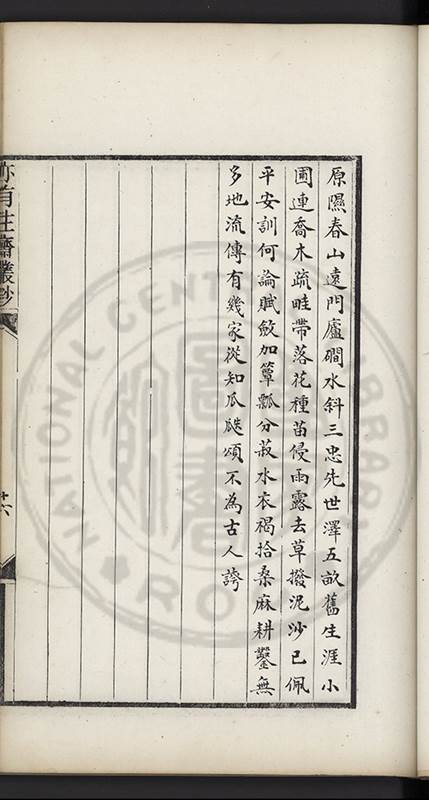 原隰春山遠門廬磵水斜三忠先世澤五畝舊生涯小
圃連喬木疏畦帶落花種苗侵雨露去草撥泥沙已佩
平安訓何論賦斂加簞瓢分菽水衣褐拾桑麻耕鑿無
多地流傳有幾家從知瓜瓞頌不為古人誇
亦有生齋叢鈔
十六
NATIONAL CENTRAL LIBRARY